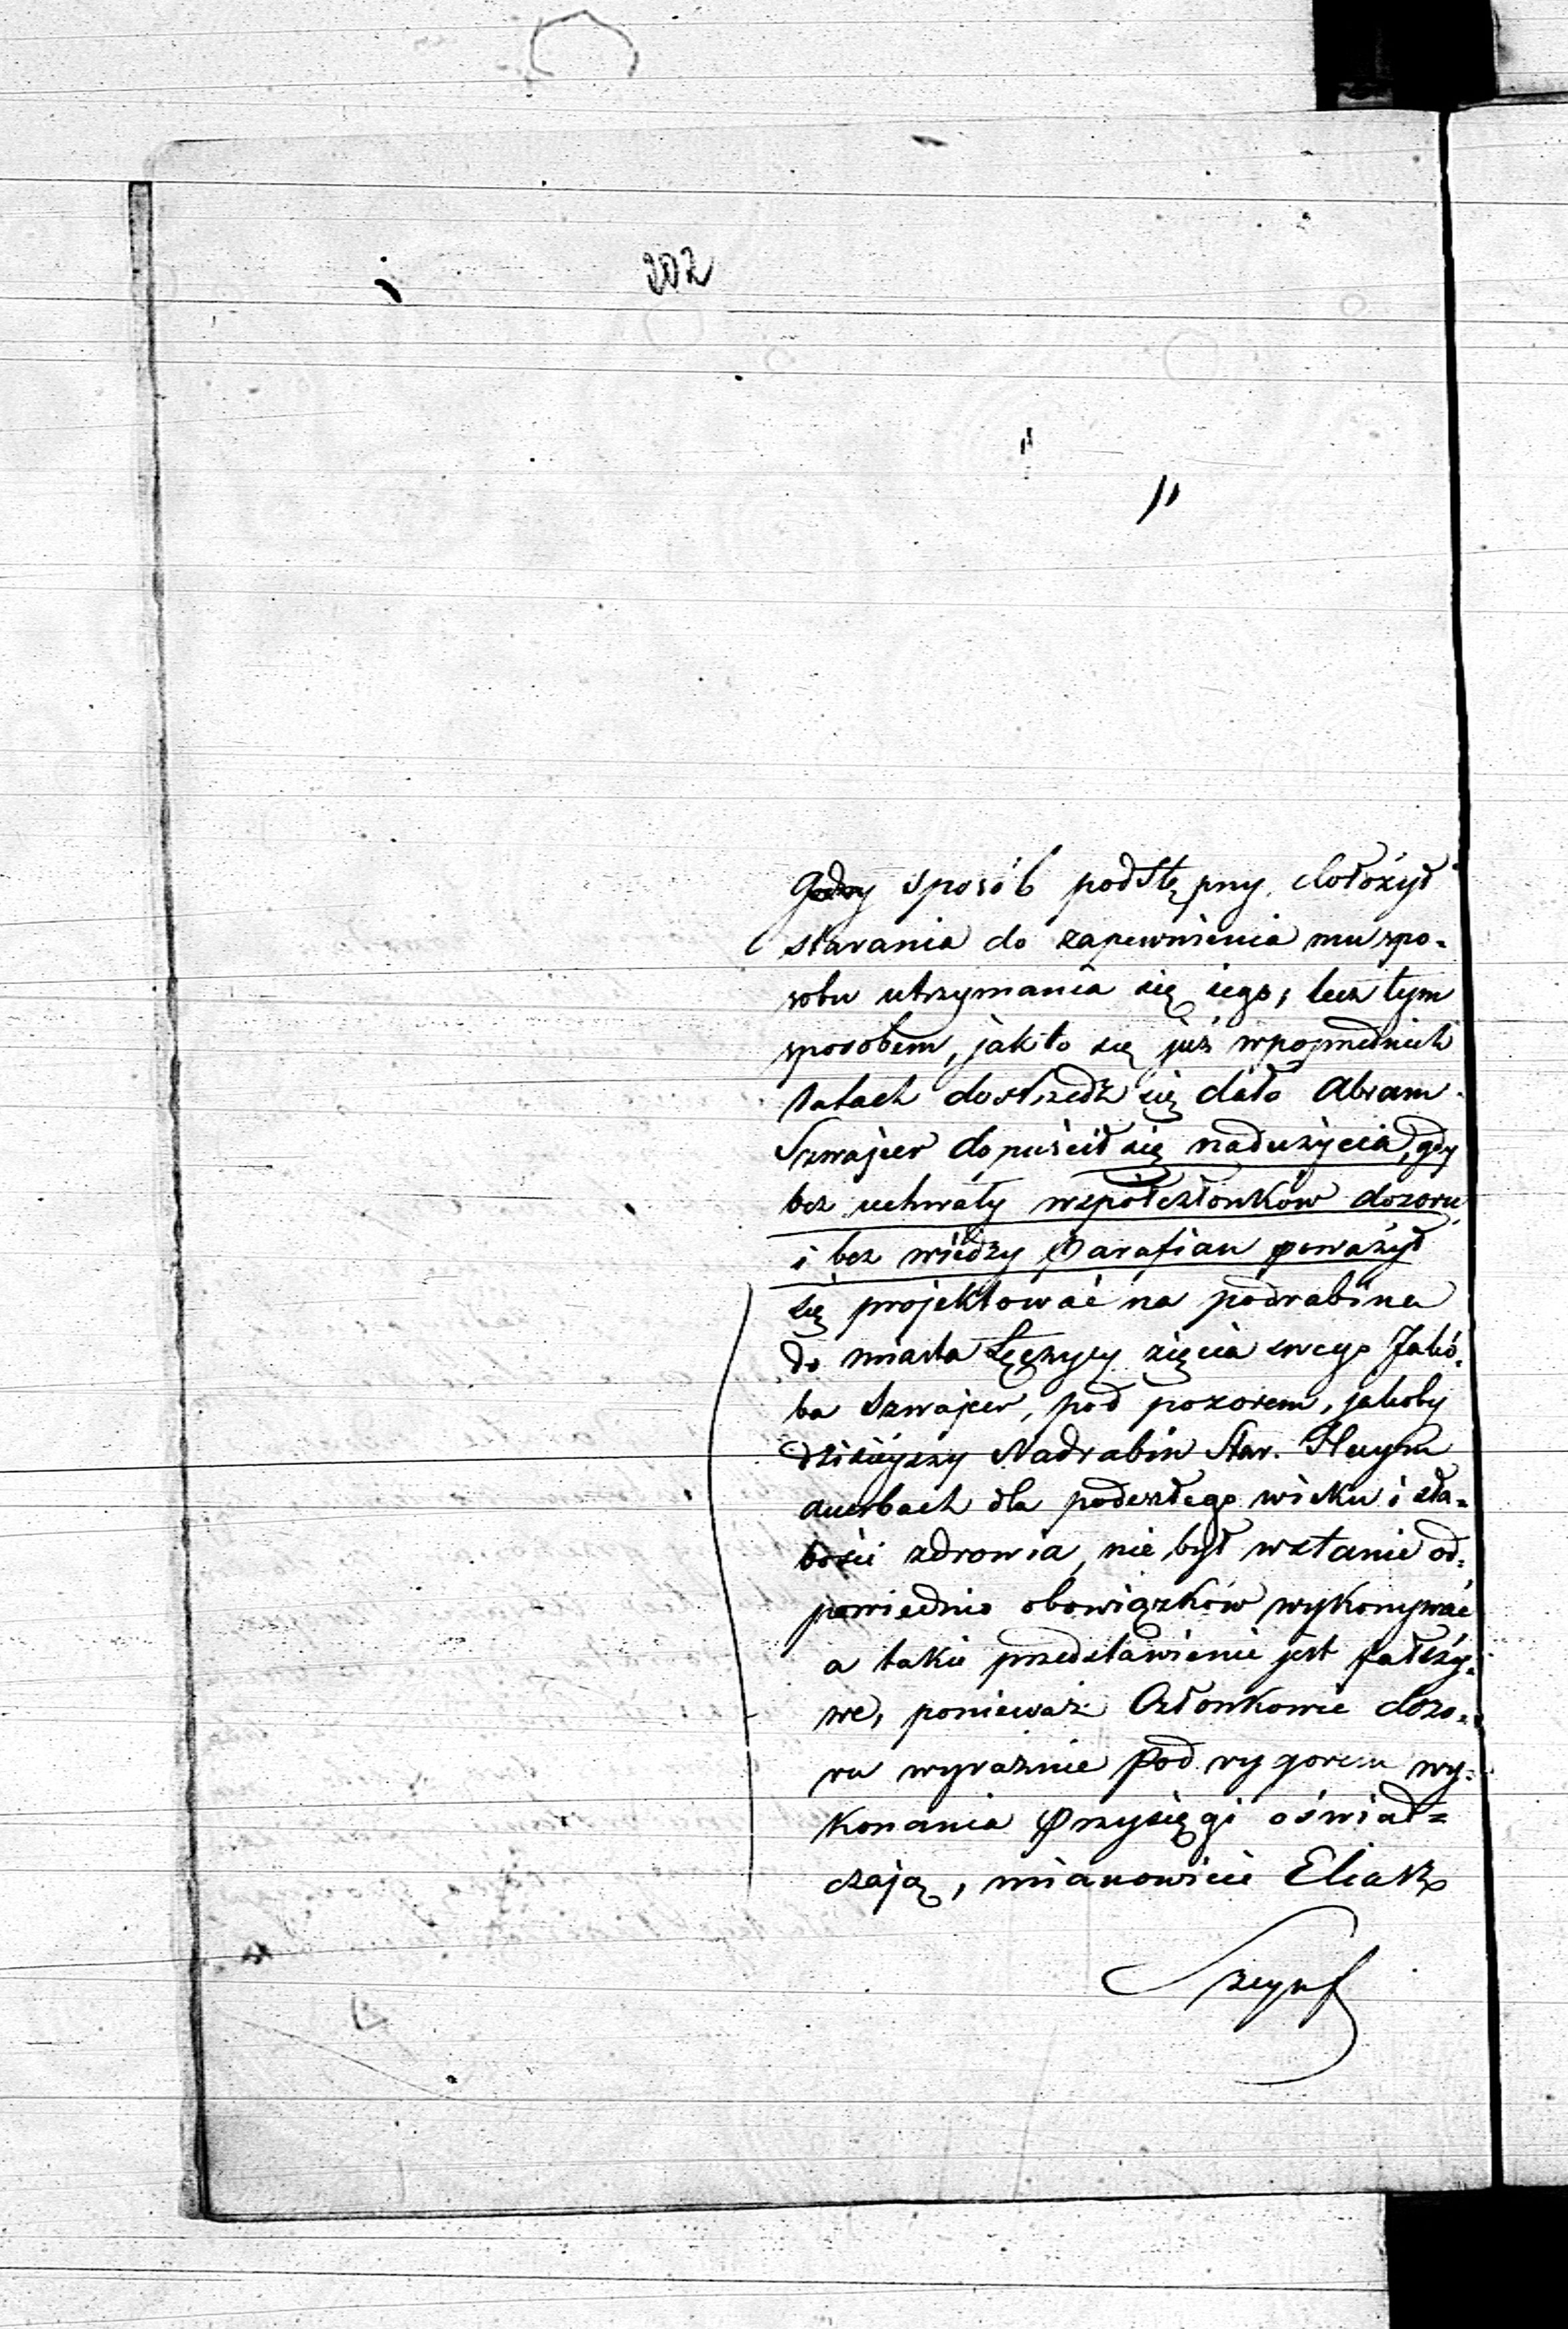 202
sposób podstępny, dołożył
starania do zapewnienia mu spo-
sobu utrzymania się iego, lecz tym
sposobem, jak to się już w
latach dostrzedz się dało Abram
Szwajcer dopuścił się nadużycia, gdy
bez uchwały współczłonków dozoru
i bez wiedzy Parafian poważył
się projektować na podrabina
do miasta Łęczycy zięcia swego Jakó-
ba Szwajcer, pod pozorem, jakoby
dzisiéyszy Nadrabin Star. Huym
Auerbach dla podeszłego wieku i sła-
bości zdrowia, nie był wstanie od-
powiednio obowiązków wykonywać
a takie przedstawienie jest fałszy-
we, ponieważ Członkowie dozo-
ru wyraznie pod rygorem wy-
konania Przysięgi oświad-
czają, mianowicie Eliasz